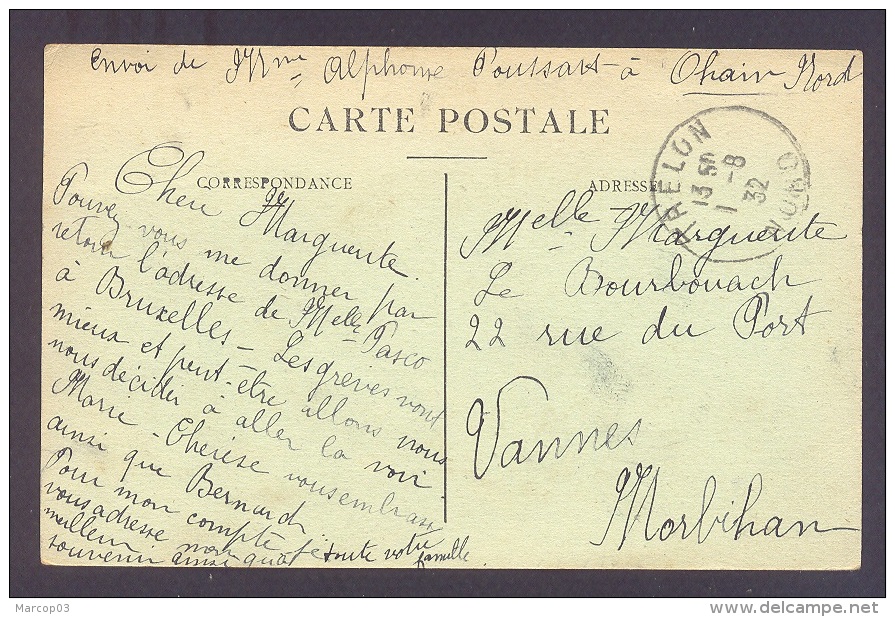 Envoi de Mme Alphonse Poussart à Ohain Nord
CARTE POSTALE
CORRESPONDANCE
ADRESSE
TRÉLON
NORD
13 50
1 -8
32
Chère Marguerite.
Pouvez-vous me donner par
retour l'adresse de Melle Pasco
à Bruxelles - Les grèves vont
mieux et peut-être allons nous
nous décider à aller la voir.
Marie-Thérèse vous embrasse
ainsi que Bernard
Pour mon compte je
vous adresse mon
meilleur
souvenir ainsi qu'à toute votre
famille.
Melle Marguerite
Le Bourbouach
22 rue du Port
Vannes
Morbihan
Marcop03
delcampe.net